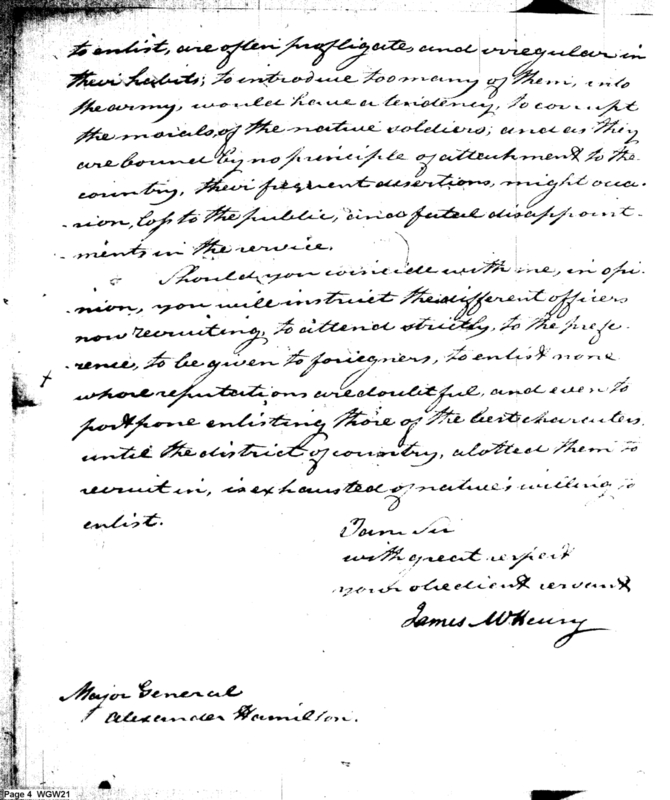 to enlist, are often profligates and irregular in
their habits; to introduce too many of them, into
the army, would have a tendency, to corrupt
the morals, of the native soldiers; and as they
are bound by no principle of attachment to the
country, their frequent desertions, might occa-
-sion, loss to the public, and fatal disappoint-
-ments in the service.
Should you coincide with me, in opi-
nion, you will instruct the different officers
now recruiting, to attend strictly, to the prefe-
-rence, to be given to foriegners, to enlist none
whose reputations are doubtful, and even to
postpone enlisting those of the best characters
until the district of country, alotted them to
recruit in, is exhausted of native's willing to
enlist.
I am Sir
with great respect
your obedient servant
James McHenry
Major General
Alexander Hamilton.
Page 4 WGW21